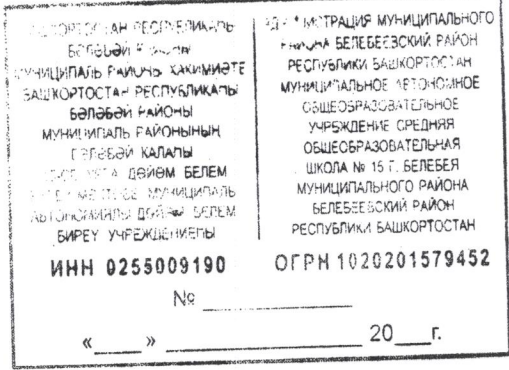 РЕСПУБЛИКАҺЫ
БӘЛӘБӘЙ РАЙОНЫ
МУНИЦИПАЛЬ РАЙОНЫ ХАКИМИӘТЕ
БАШҠОРТОСТАН РЕСПУБЛИКАҺЫ
БӘЛӘБӘЙ РАЙОНЫ
МУНИЦИПАЛЬ РАЙОНЫНЫҢ
БӘЛӘБӘЙ ҠАЛАҺЫ
УРТА ДӨЙӨМ БЕЛЕМ
МУНИЦИПАЛЬ
АВТОНОМИЯЛЫ ДӨЙӨМ БЕЛЕМ
БИРЕҮ УЧРЕЖДЕНИЕҺЫ
ИНН 0255009190
АДМИНИСТРАЦИЯ МУНИЦИПАЛЬНОГО
РАЙОНА БЕЛЕБЕЕВСКИЙ РАЙОН
РЕСПУБЛИКИ БАШКОРТОСТАН
МУНИЦИПАЛЬНОЕ АВТОНОМНОЕ
ОБЩЕОБРАЗОВАТЕЛЬНОЕ
УЧРЕЖДЕНИЕ СРЕДНЯЯ
ОБЩЕОБРАЗОВАТЕЛЬНАЯ
ШКОЛА № 15 Г. БЕЛЕБЕЯ
МУНИЦИПАЛЬНОГО РАЙОНА
БЕЛЕБЕЕВСКИЙ РАЙОН
РЕСПУБЛИКИ БАШКОРТОСТАН
ОГРН 1020201579452
№ ____________
«____» ____________ 20___г.